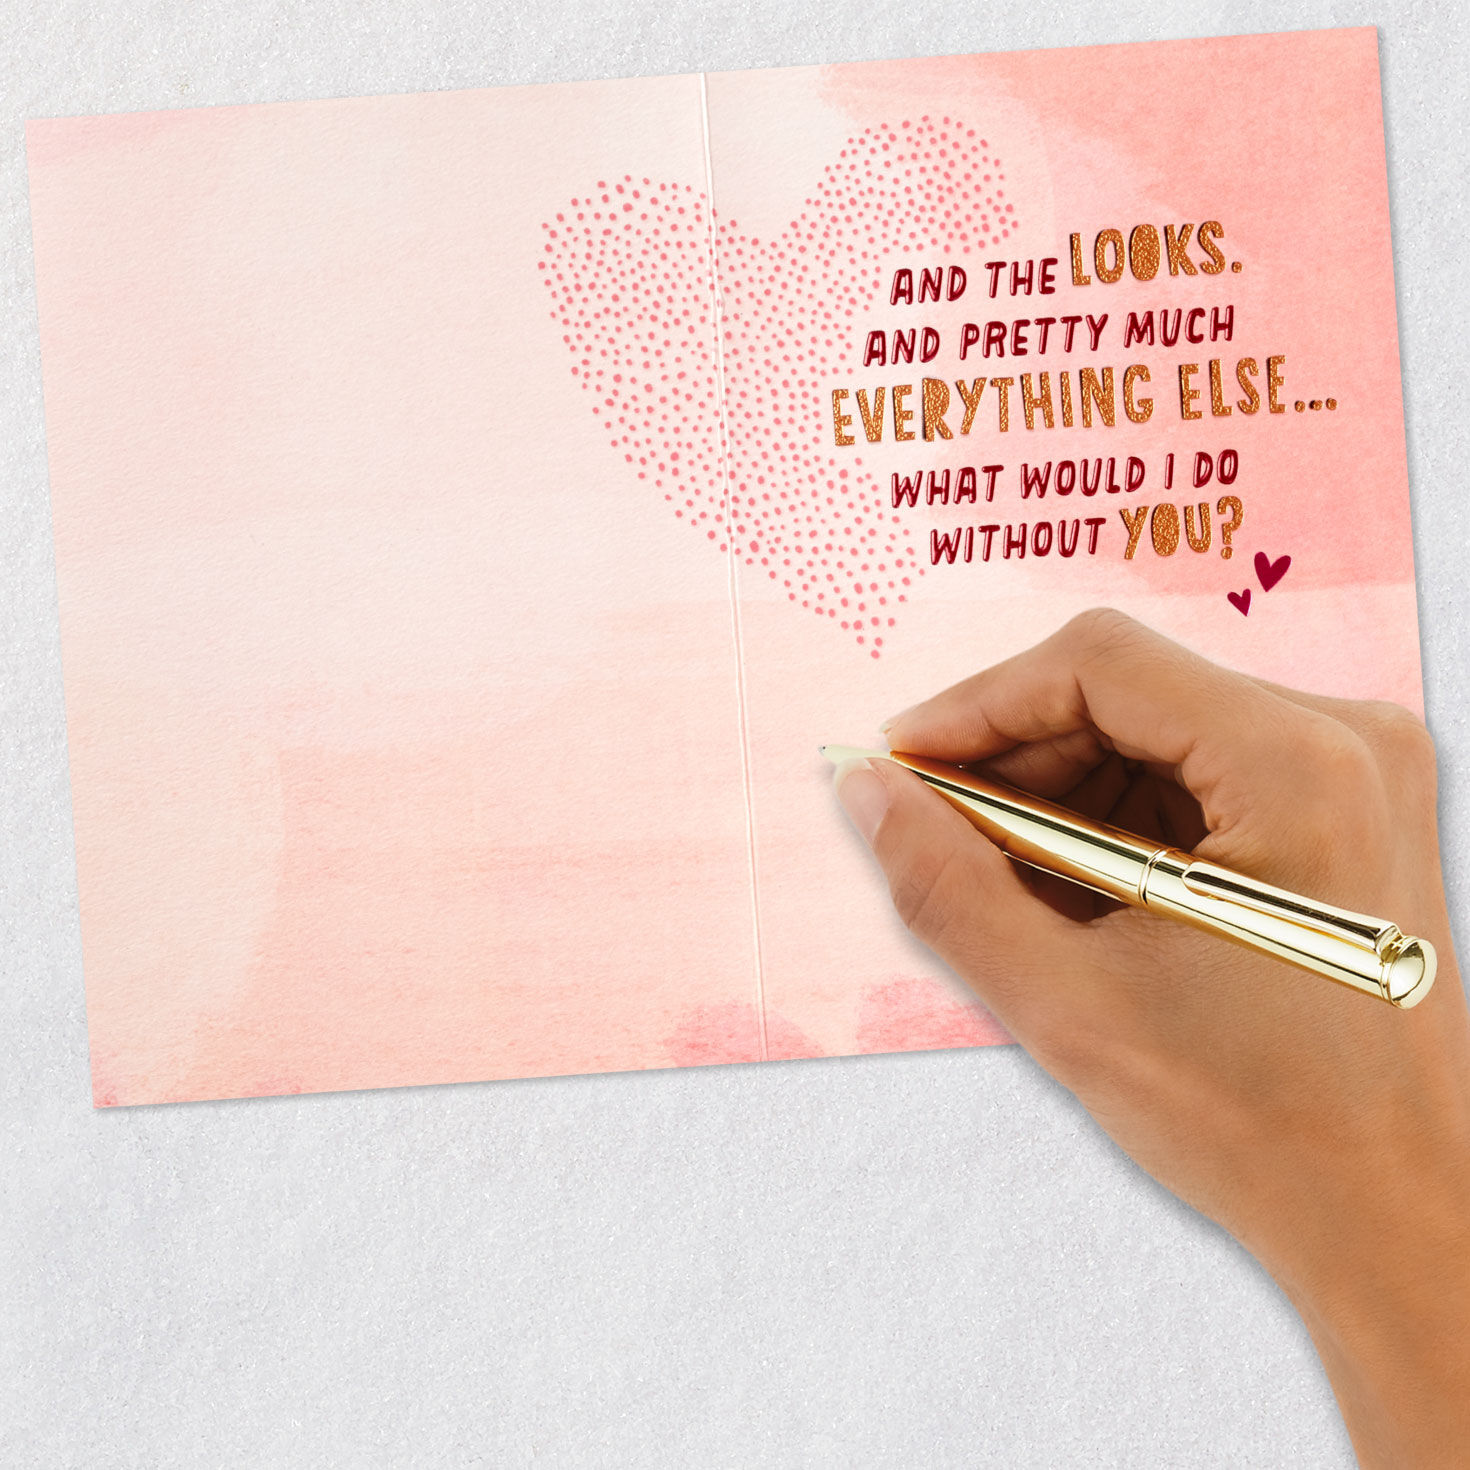 AND THE LOOKS.
AND PRETTY MUCH
EVERYTHING ELSE...
WHAT WOULD I DO
WITHOUT YOU?